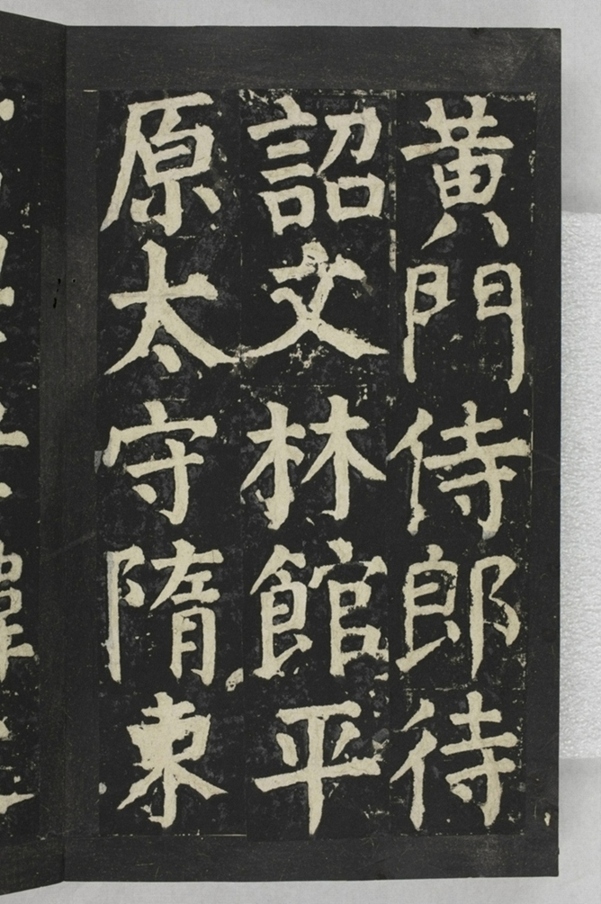 黄門侍郎待
詔文林館平
原太守隋東